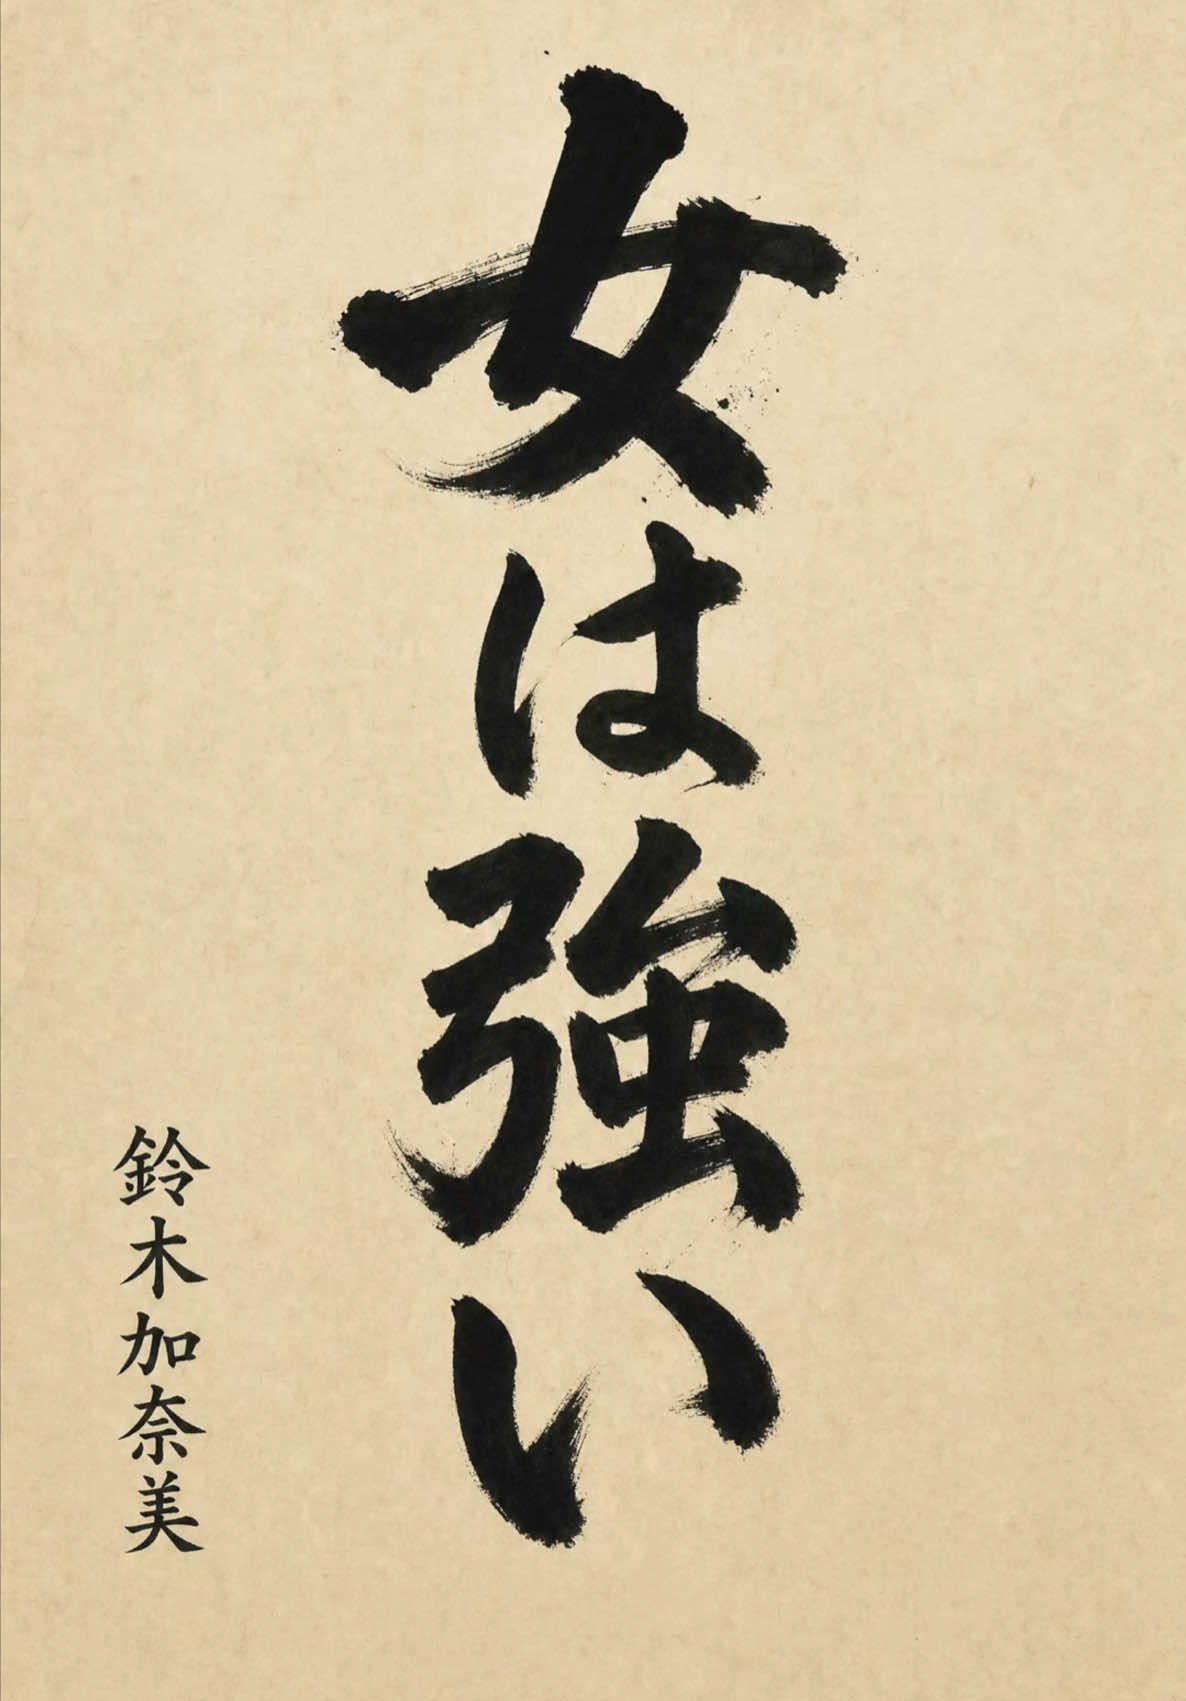 女は強い
鈴木加奈美